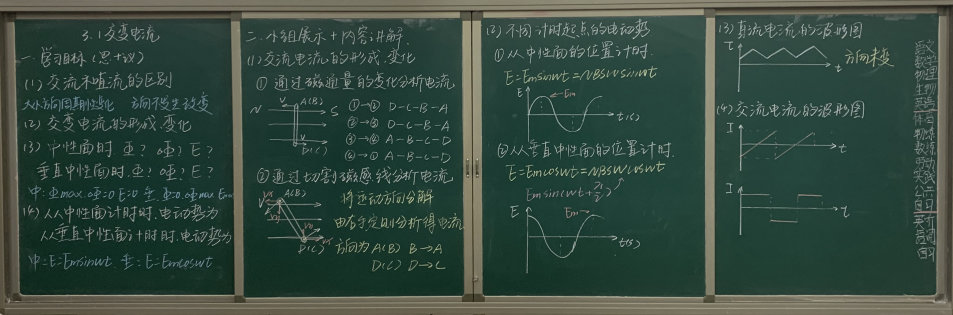 3.1交变电流
一、学习目标(思+议)
(1)交流和直流的区别
大小方向周期性变化 方向不发生改变
(2)交变电流的形成.变化
(3)中性面时.Φ? E?
垂直中性面时.Φ? E?
中:Φmax E=0 垂 Φ=0
(4)从中性面计时时.电动势为
从垂直中性面计时时.电动势为
中:E=Emsinwt 垂:E=Emcoswt
二、小组展示+内容讲解
(1)交流电流的形成.变化
①通过磁通量的变化分析电流
N V A(B) S
D(C)
①→② D-C-B-A
②→③ D-C-B-A
③→④ A-B-C-D
④→① A-B-C-D
②通过切割磁感线分析电流
A(B)
D(C)
将运动方向分解
由右手定则分析得电流
方向为A(B) B→A
D(C) D→C
(2)不同计时起点的电动势
①从中性面的位置计时.
E=Emsinwt=NBSwsinwt
E Em
t(s)
②从垂直中性面的位置计时.
E=Emcoswt=NBSwcoswt
Emsin(wt+π/2)
E Em
t(s)
(3)直流电流的波形图
I
t
方向未变
(4)交流电流的波形图
I
t
I
t
语文
数学
物理
生物
英语
体育